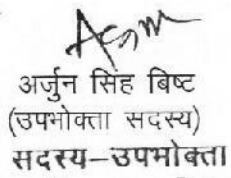 अर्जुन सिंह बिष्ट
(उपभोक्ता सदस्य)
सदस्य–उपभोक्ता